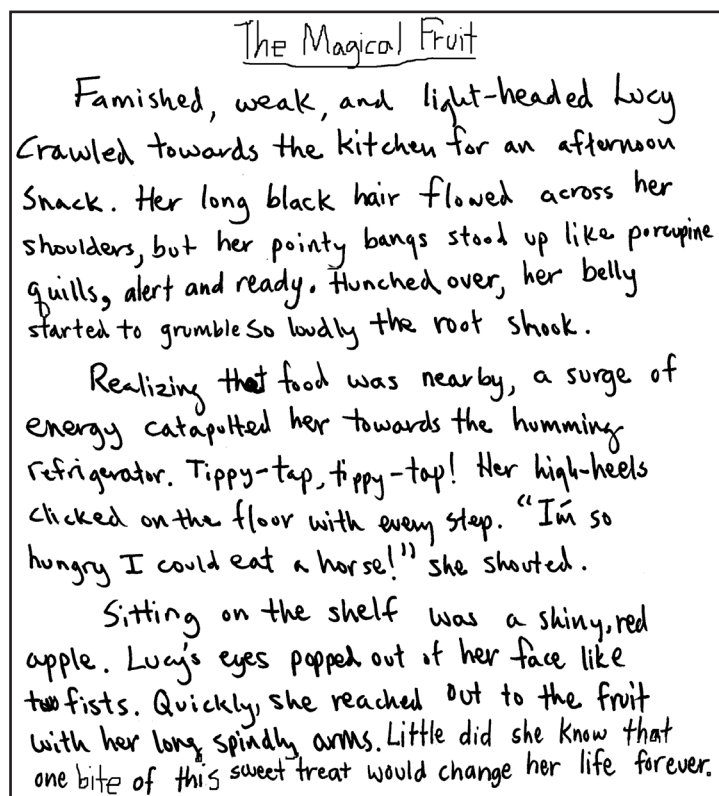 The Magical Fruit
Famished, weak, and light-headed Lucy
Crawled towards the kitchen for an afternoon
Snack. Her long black hair flowed across her
shoulders, but her pointy bangs stood up like porcupine
quills, alert and ready. Hunched over, her belly
started to grumble so loudly the root shook.
Realizing that food was nearby, a surge of
energy catapulted her towards the humming
refrigerator. Tippy-tap, tippy-tap! Her high-heels
clicked on the floor with every step. "I'm so
hungry I could eat a horse!" she shouted.
Sitting on the shelf was a shiny, red
apple. Lucy's eyes popped out of her face like
two fists. Quickly, she reached out to the fruit
with her long spindly arms. Little did she know that
one bite of this sweet treat would change her life forever.